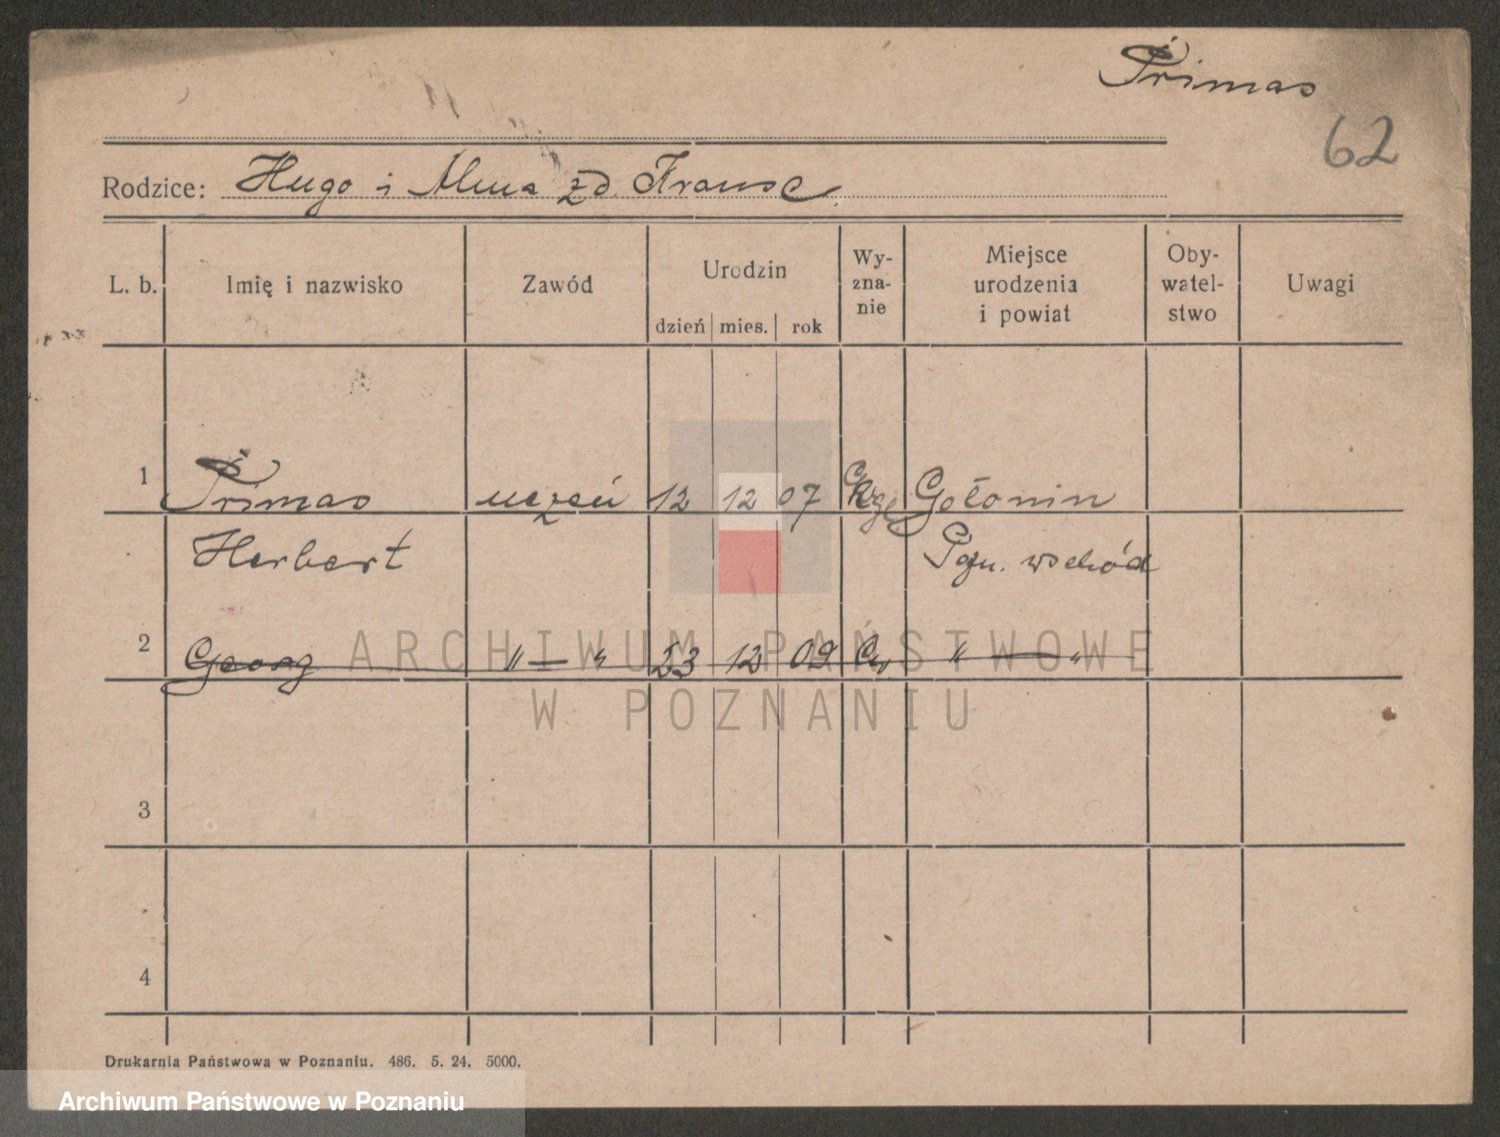 Primas
62
Rodzice: Hugo i Alma zd. Franse
L. b. Imię i nazwisko Zawód Urodzin dzień mies. rok Wy-zna-nie Miejsce urodzenia i powiat Oby-watel-stwo Uwagi
1 Primas uczeń 12 12 07 Gołonin
Herbert Pozn. wschód
2 Georg " — " 23 12 09 Ew " — "
3
4
ARCHIWUM PAŃSTWOWE
W POZNANIU
Drukarnia Państwowa w Poznaniu. 486. 5. 24. 5000.
Archiwum Państwowe w Poznaniu